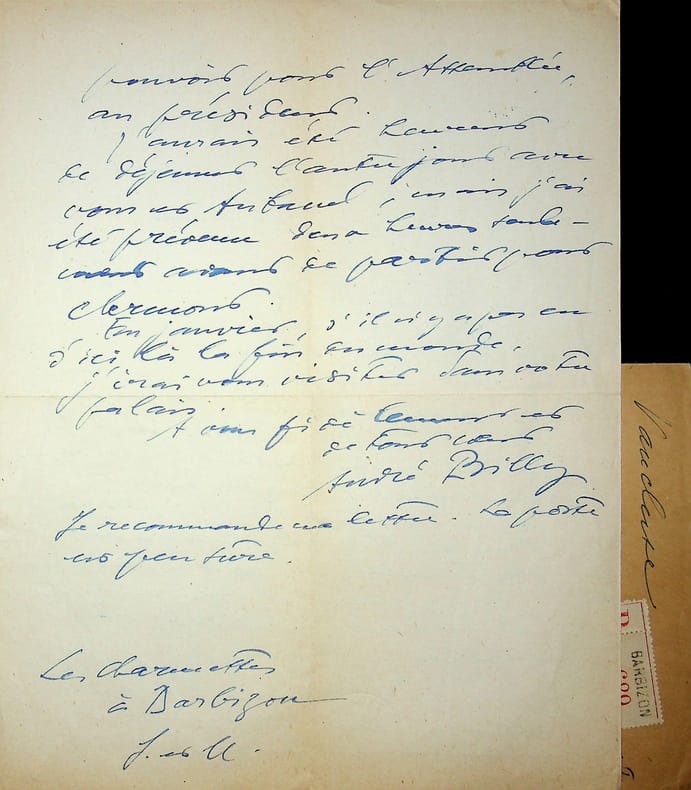 pouvoir pour l'Assemblée,
au président.
J'aurais été heureux
de déjeuner l'autre jour avec
vous et Artaud, mais j'ai
été prévenu deux heures seule-
ment avant de partir pour
Clermont.
En janvier, s'il n'y a pas eu
d'ici là la fin du monde,
j'irai vous visiter dans votre
palais.
A vous fidèlement et
de tout cœur
André Billy
Je recommande ma lettre. La poste
est peu sûre.
Les Charmettes
à Barbizon
S. et M.
Vaucluse
R
BARBIZON